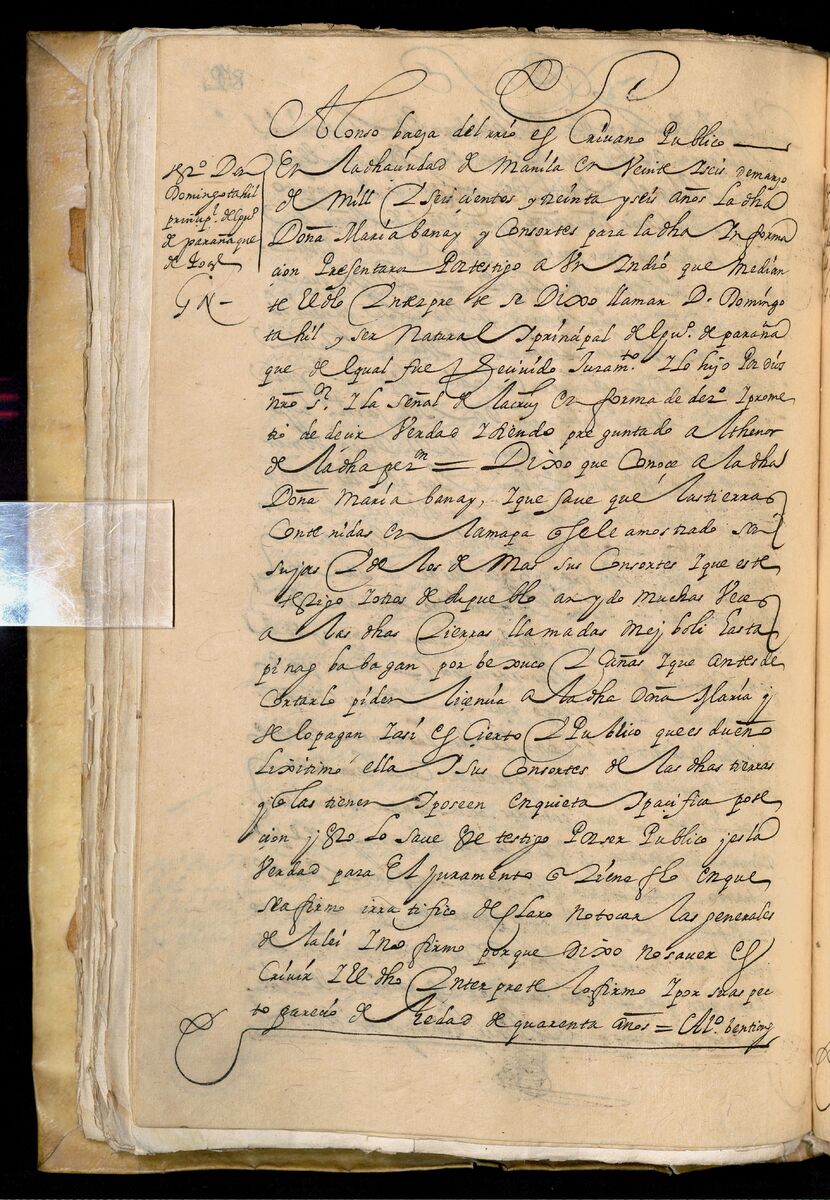 Alonso baeza del rrio es Criuano Publico
tgo Don
Domingo tahil
prinçipl del puo
de parañaque
de Jon
En la dha ciudad de Manila en Veinte y seis de março
de Mill y seis cientos y treinta y seis años La dha
Doña Maria banay y Consortes para la dha Informa
cion Presentaron Por testigo a Un Indio que median
te El dho Interpre te se Dixo llamar Dn Domingo
tahil y ser Natural y prinsipal del puo de paraña
que del qual fue Recivido Juramto y Lo hizo Por dios
nro sr y la señal de la cruz en forma de dro y prome
tio de decir Verdad y siendo pre guntado al thenor
de la dha petin = Dixo que Conoce a la dha
Doña Maria banay, y que save que las tierras
Conte nidas en la mapa q se le a mostrado son
suyas y de los de Mas sus Consortes y que este
testigo y otros de su pueblo an ydo muchas Veces
a las dhas tierras llamadas Mejboli Easta
pinag ba bagan por bexuco y cañas y que antes de
Cortarlo piden licencia a la dha Doña Maria y
se lo pagan y asi es Cierto y Publico que es dueño
Lixitimo ella y sus Consortes de las dhas tierras
q las tienen y poseen en quieta y pacifica pose
cion y esto lo save este testigo Por ser Publico y es la
Verdad para El juramento q tiene fho en que
se afirmo i rratifico declaro no tocar las generales
de la lei y no firmo porque Dixo no saver es
Crivir y El dho Inter prete lo firmo y por su aspec
to parecio de hedad de quarenta años = Alo bentiong